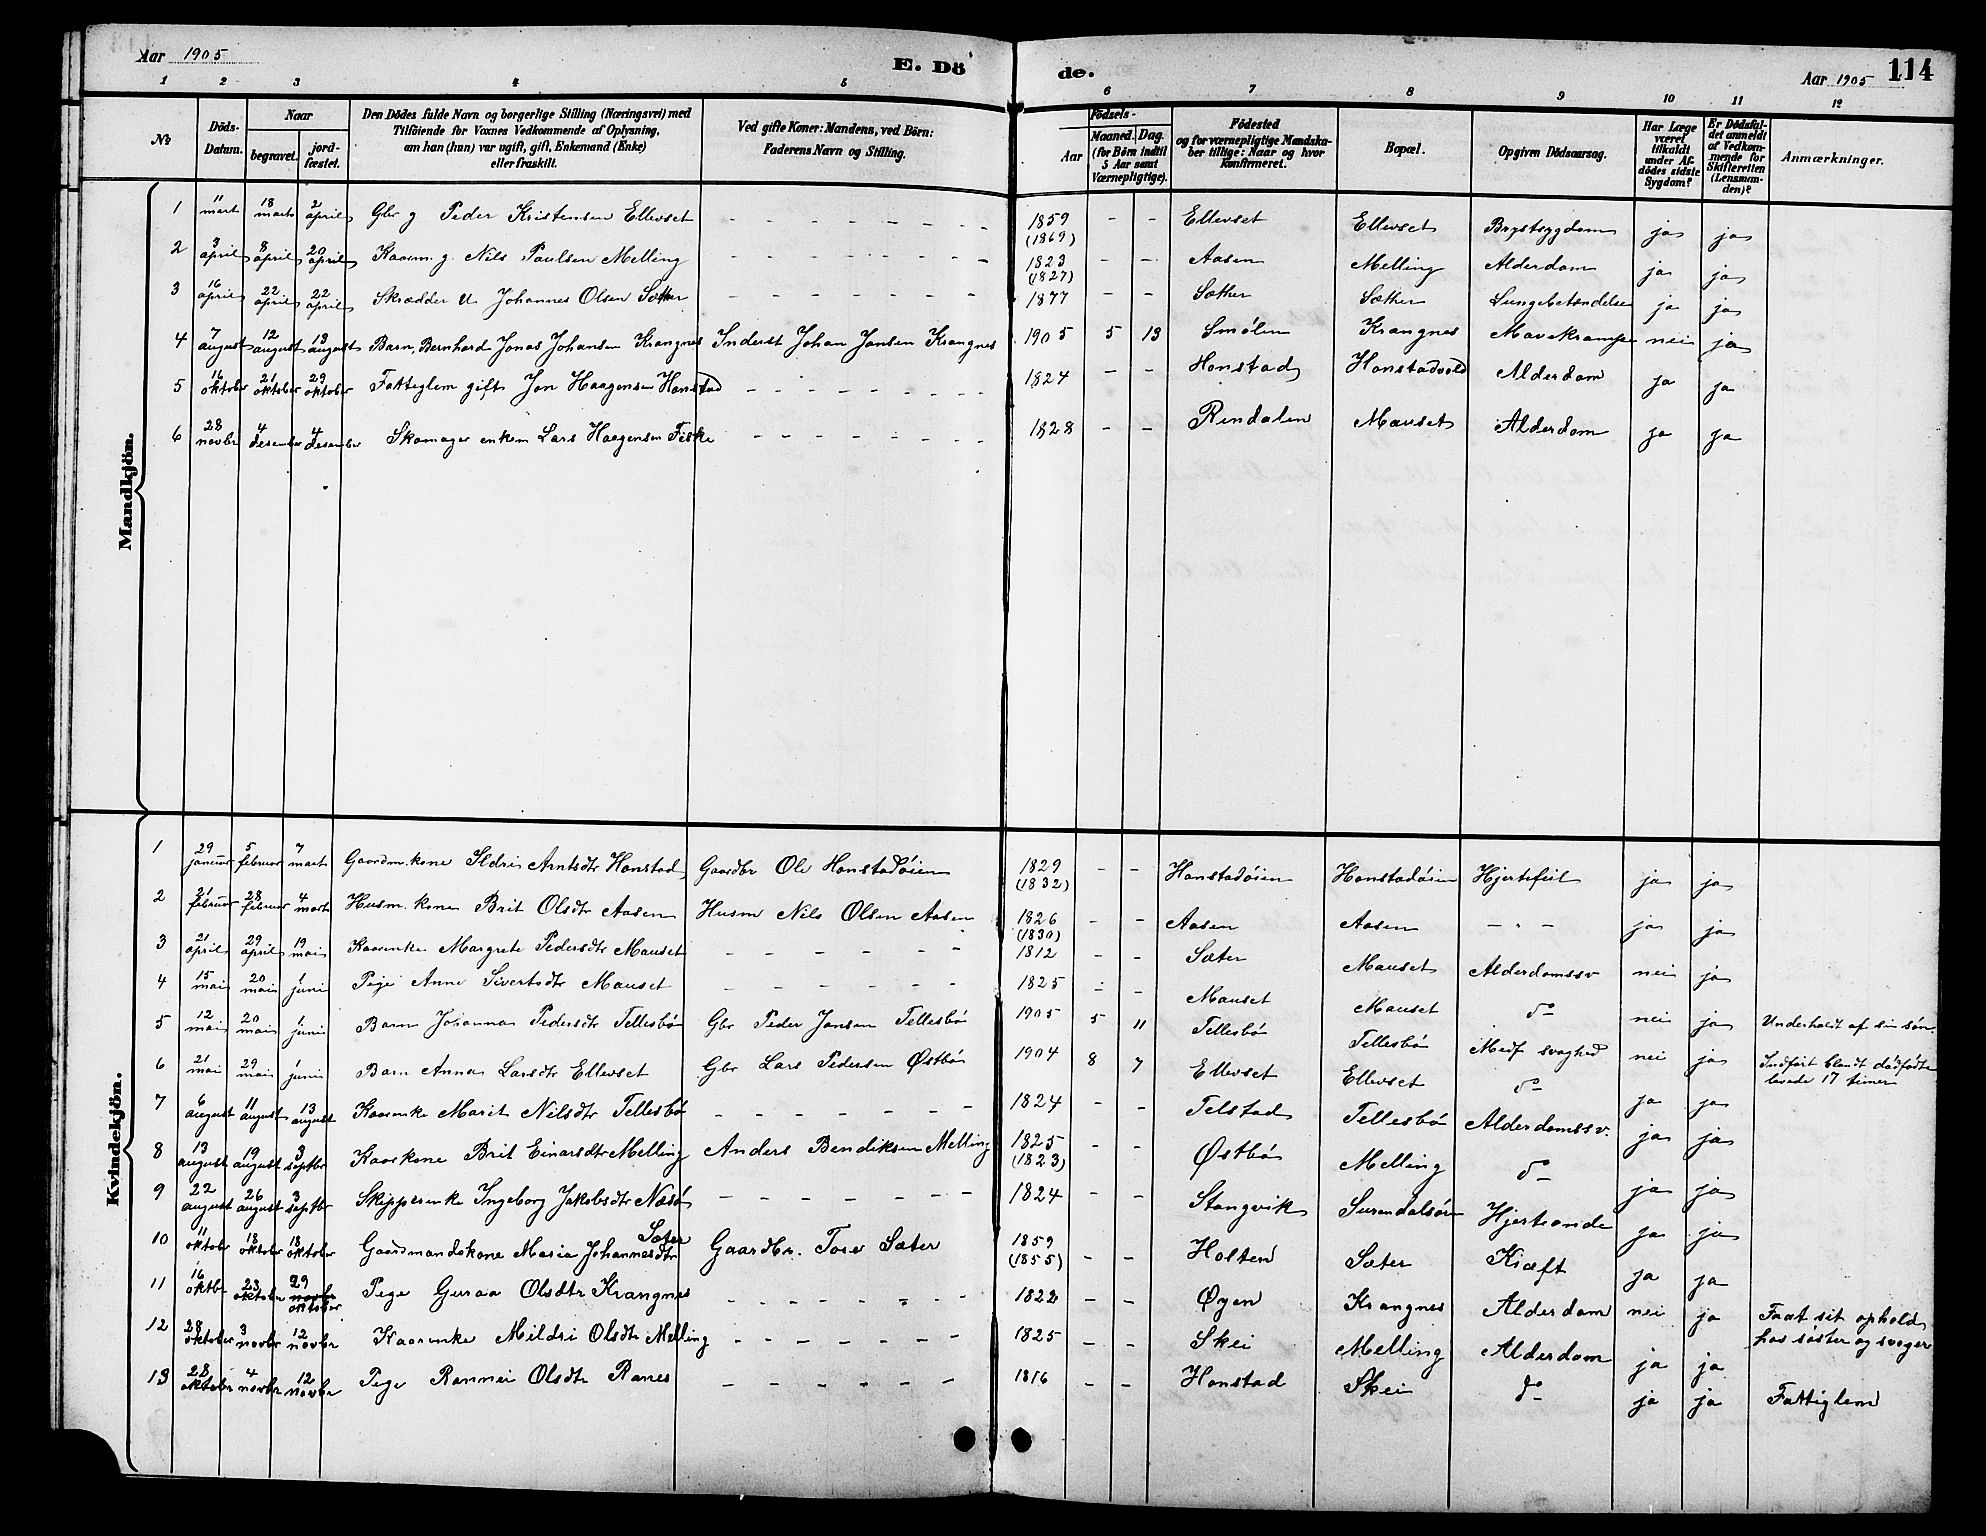 Aar 1905
E. Dö
de.
Aar 1905
114
1 2 3 4 5 6 7 8 9 10 11 12
No
Döds-Datum.
Naar
begravet.
jord-fæstet.
Den Dödes fulde Navn og borgerlige Stilling (Næringsvei) med Tilföiende for Voxnes Vedkommende af Oplysning, om han (hun) var ugift, gift, Enkemand (Enke) eller fraskilt.
Ved gifte Koner: Mandens, ved Börn: Faderens Navn og Stilling.
Födsels-
Aar
Maaned. Dag.
(for Börn indtil 5 Aar samt Værnepligtige).
Födested og for værnepligtige Mandskaber tillige: Naar og hvor konfirmeret.
Bopæl.
Opgiven Dödsaarsag.
Har Læge været tilkaldt under Afdödes sidste Sygdom?
Er Dödsfaldet anmeldt af Vedkommende for Skifteretten (Lensmanden)?
Anmærkninger.
Mandkjön.
1 11 marts 18 marts 2 april Gbr g Peder Kristensen Ellevset - - - 1859 (1869) - - Ellevset Ellevset Brystsygdom ja ja
2 3 april 8 april 20 april Kaarm. g. Nils Paulsen Melling - - - 1823 (1827) - - Aasen Melling Alderdom ja ja
3 16 april 22 april 22 april Skrædder u Johannes Olsen Sæther - - - 1877 - - Sæther Sæther Lungebetændelse ja ja
4 7 august 12 august 13 august Barn, Bernhard Jonas Johansen Krangnes Inderst Johan Jonsen Krangnes 1905 5 13 Smölen Krangnes Mavekrampe nei ja
5 16 oktober 21 oktober 29 oktober Fattiglem gift Jon Haagensen Honstad - - - 1824 - - Honstad Honstadvold Alderdom ja ja
6 28 novbr 4 desember 4 desember Skomager enkem Lars Haagensen Fiske - - - 1828 - - Rindalen Mauset Alderdom ja ja
Kvindekjön.
1 29 januar 5 februar 7 mart Gaardm.kone Ildri Arntsdtr Honstad Gaardbr Ole Honstadöien 1829 (1832) - - Honstadöien Honstadöien Hjertefeil ja ja
2 21 februar 28 februar 4 marts Husm.kone Brit Olsdtr Aasen Husm Nils Olsen Aasen 1826 (1830) - - Aasen Aasen - " - ja ja
3 21 april 29 april 19 mai Kaarenke Margrete Pedersdtr Mauset - - - 1812 - - Sæter Mauset Alderdomssv nei ja
4 15 mai 20 mai 1 juni Pige Anne Sivertsdtr Mauset - - - 1825 - - Mauset Mauset do nei ja Underholdt af sin søn.
5 12 mai 20 mai 1 juni Barn Johanna Pedersdtr Tellesbö Gbr Peder Jonsen Tellesbö 1905 5 11 Tellesbö Tellesbö Medf svaghed nei ja Indført blandt dødfødte levede 17 timer
6 21 mai 29 mai 1 juni Barn Anna Larsdtr Ellevset Gbr Lars Pedersen Østbö 1904 8 7 Ellevset Ellevset do ja ja
7 6 august 11 august 13 august Kaarenke Marit Nilsdtr Tellesbö - - - 1824 - - Telstad Tellesbö Alderdomssv. ja ja
8 13 august 19 august 3 septbr Kaarkone Brit Einarsdtr Melling Anders Bendiksen Melling 1825 (1823) - - Østbö Melling do ja ja
9 22 august 26 august 3 septbr Skipperenke Ingeborg Jakobsdtr Næsö - - - 1824 - - Stangvik Surendalsören Hjerteonde ja ja
10 11 oktober 18 oktober 18 oktober Gaardmandskone Maria Johannesdtr Sæter Gaardbr. Tore Sæter 1859 (1855) - - Holten Sæter Kræft ja ja
11 16 oktbr 23 oktober 29 novbr oktober Pige Guraa Olsdtr Krangnes - - - 1822 - - Øyen Krangnes Alderdom nei ja Faat sit ophold hos søster og svoger
12 28 oktober 3 novbr 12 novbr Kaarenke Mildri Olsdtr Melling - - - 1825 - - Skei Melling Alderdom ja ja
13 28 oktober 4 novbr 12 novbr Pige Rannei Olsdtr Ranes - - - 1816 - - Honstad Skei do ja ja Fattiglem